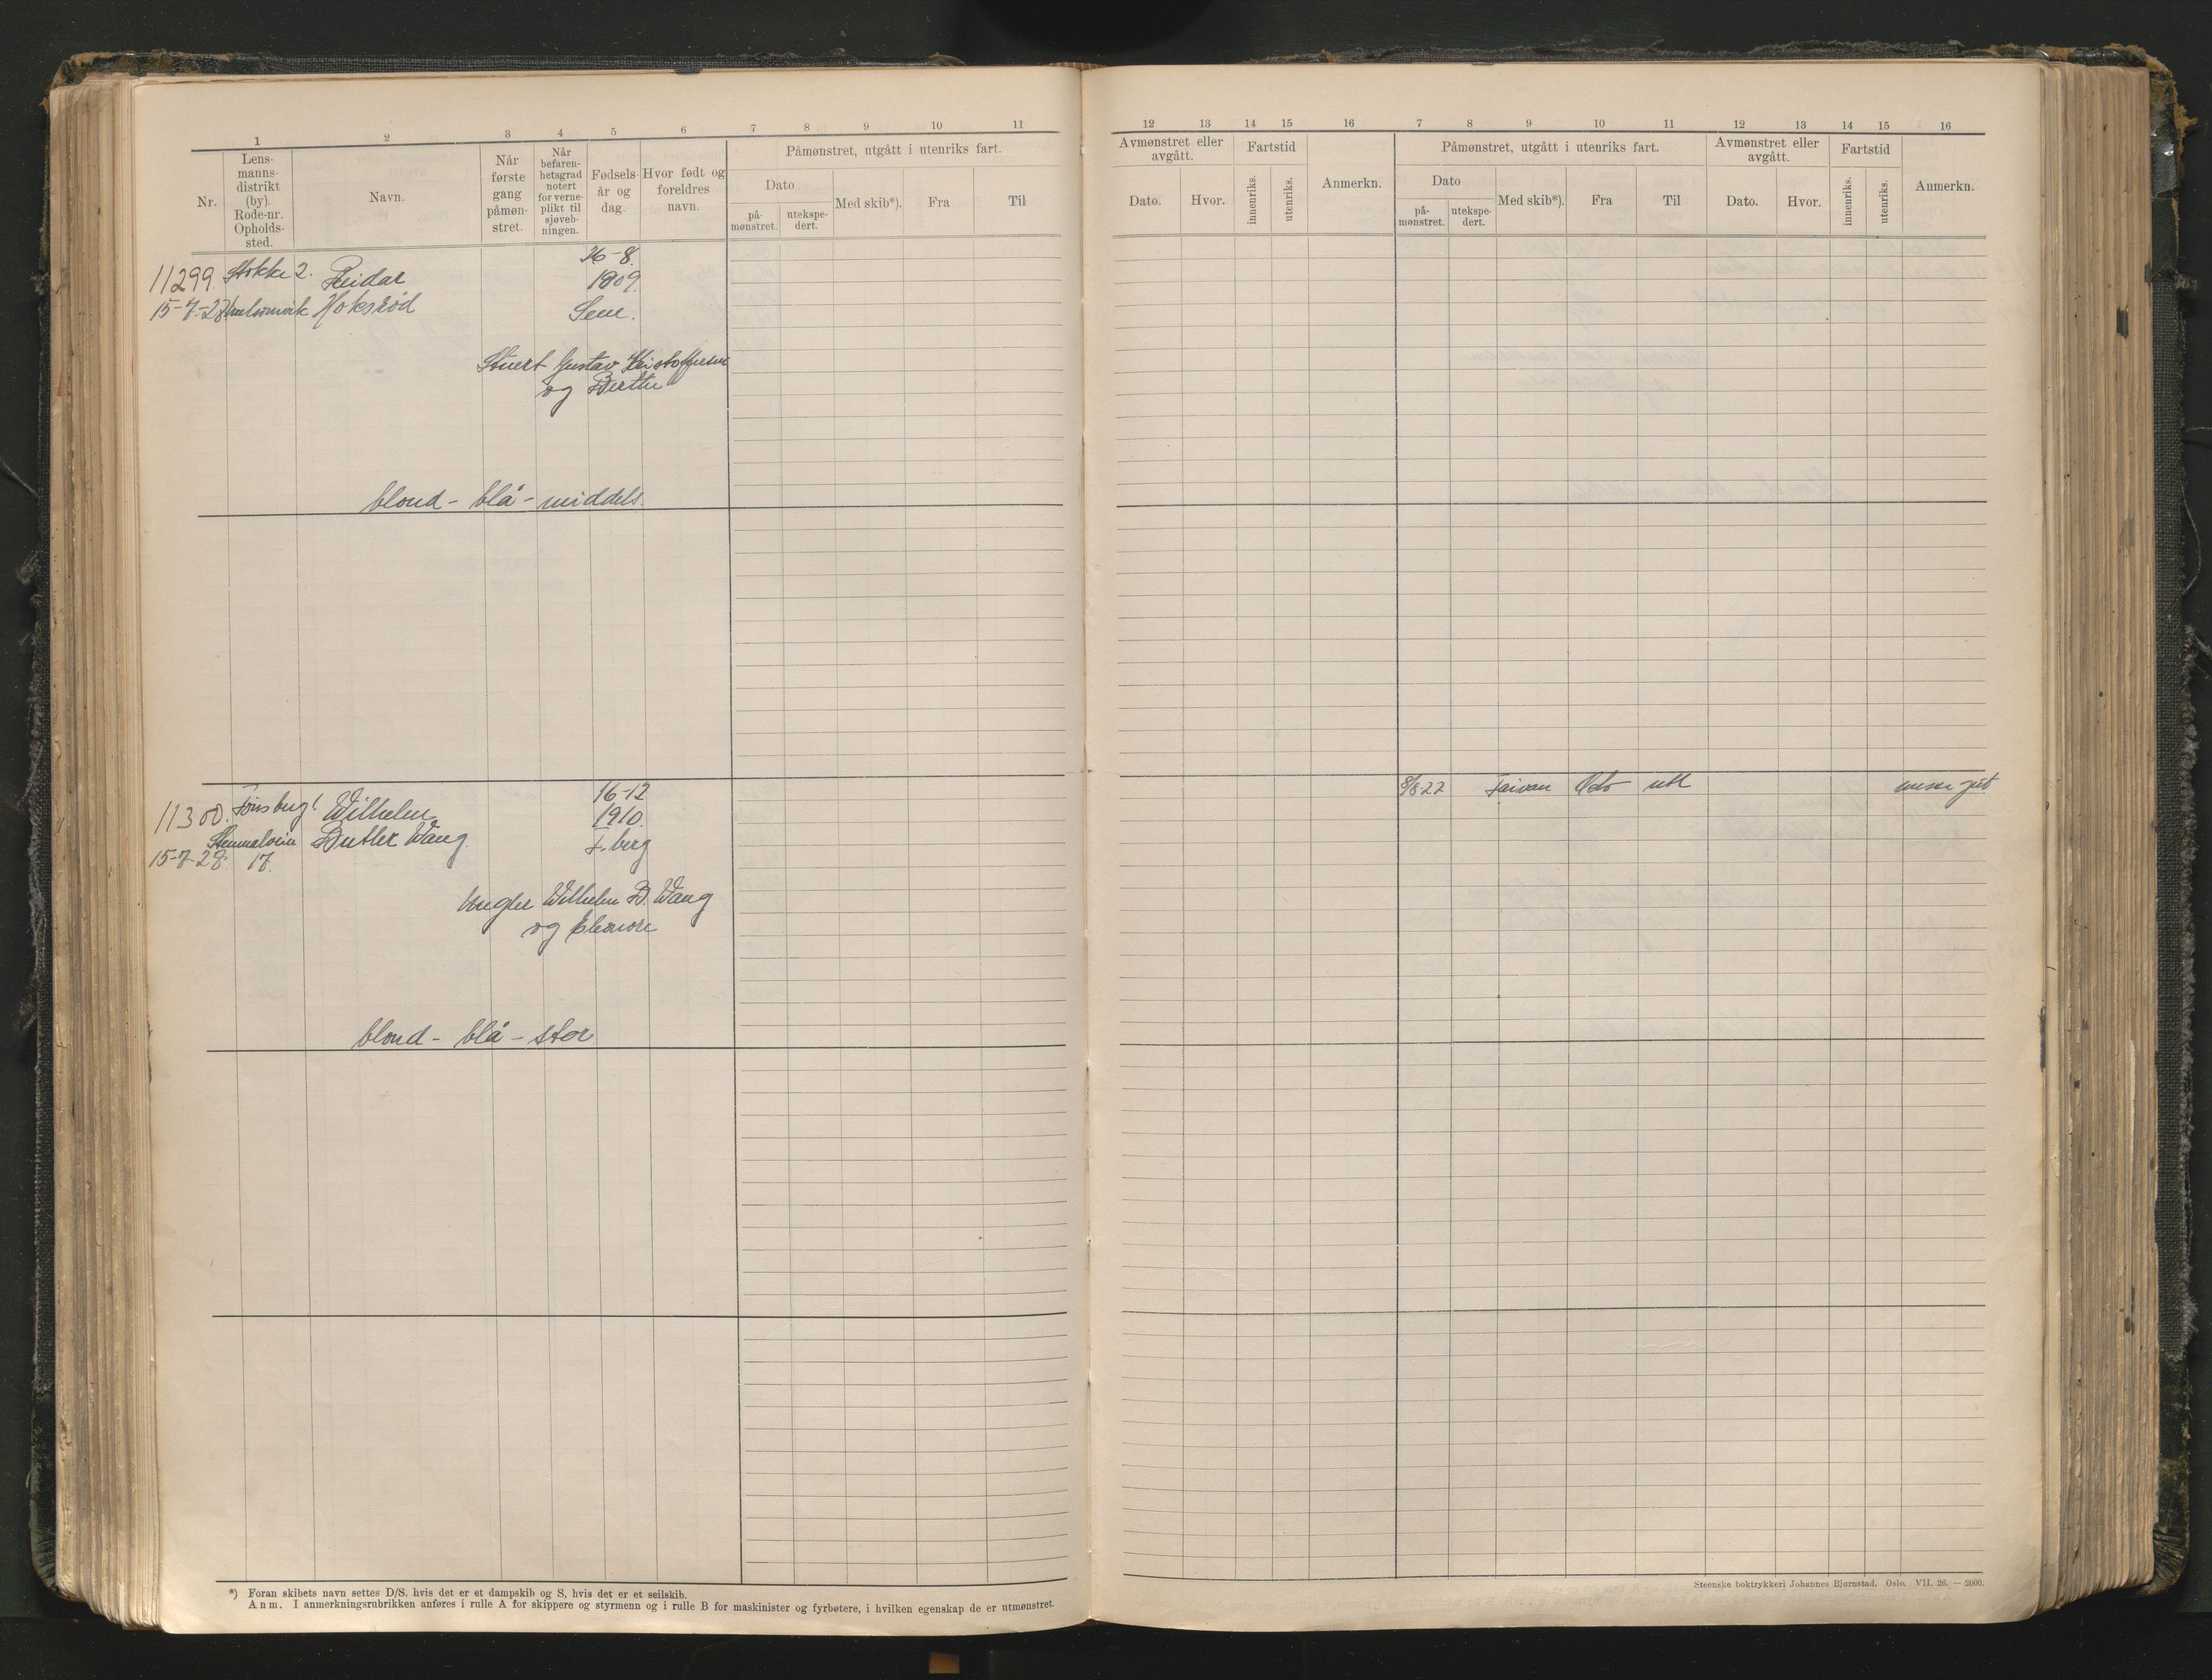 1 2 3 4 5 6 7 8 9 10 11
Nr.
Lens-
manns-
distrikt
(by).
Rode-nr.
Opholds-
sted.
Navn.
Når
første
gang
påmøn-
stret.
Når
befaren-
hetsgrad
notert
for verne-
plikt til
sjøveb-
ningen.
Fødsels-
år og
dag.
Hvor født og
foreldres
navn.
Påmønstret, utgått i utenriks fart.
Dato
på-
mønstret.
utekspe-
dert.
Med skib*).
Fra
Til
11299. Stokke 2. Reidar 26-8.
1909.
15-7-28 Hoksrød Sem.
Stuert Gustav Kristoffersen
og Berthe
blond - blå - middels.
11300. Tønsberg 1. Wilhelm 16-12
1910.
Butler Wang. T.berg
15-7-28. 17.
Wilhelm B. Wang
og Eleonore
blond - blå - stor
*) Foran skibets navn settes D/S, hvis det er et dampskib og S, hvis det er et seilskib.
Anm. I anmerkningsrubrikken anføres i rulle A for skippere og styrmenn og i rulle B for maskinister og fyrbøtere, i hvilken egenskap de er utmønstret.
12 13 14 15 16 7 8 9 10 11 12 13 14 15 16
Avmønstret eller
avgått.
Dato.
Hvor.
Fartstid
innenriks.
utenriks.
Anmerkn.
Påmønstret, utgått i utenriks fart.
Dato
på-
mønstret.
utekspe-
dert.
Med skib*).
Fra
Til
Avmønstret eller
avgått.
Dato.
Hvor.
Fartstid
innenriks.
utenriks.
Anmerkn.
Taivan Oslo utl
Steenske boktrykkeri Johannes Bjørnstad. Oslo. VII. 26. — 2000.